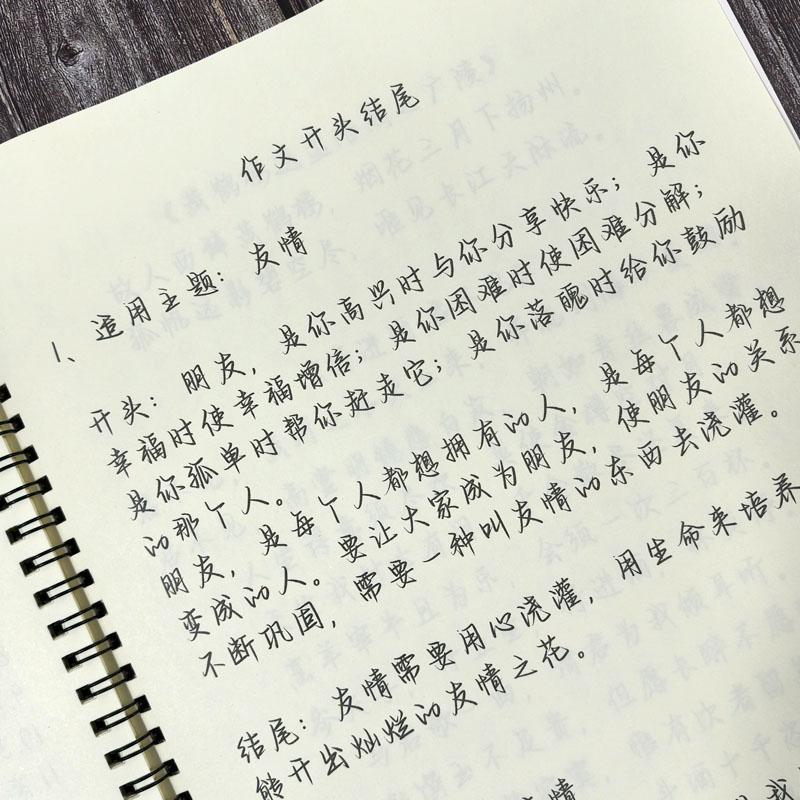 作文开头结尾
1、适用主题：友情
开头：朋友，是你高兴时与你分享快乐；是你
幸福时使幸福增倍；是你困难时使困难分解；
是你孤单时帮你赶走它；是你落魄时给你鼓励
的那个人。
朋友，是每个人都想拥有的人，是每个人都想
变成的人。要让大家成为朋友，使朋友的关系
不断巩固，需要一种叫友情的东西去浇灌。
结尾：友情需要用心浇灌，用生命来培养
能开出灿烂的友情之花。